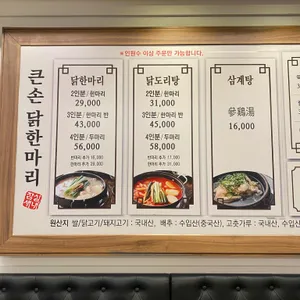 *인원수 이상 주문만 가능합니다.
큰손 닭한마리
닭한마리
2인분/한마리
29,000
3인분/한마리 반
43,000
4인분/두마리
56,000
반마리 추가
한마리 추가
닭도리탕
2인분/한마리
31,000
3인분/한마리 반
45,000
4인분/두마리
58,000
반마리 추가
한마리 추가
삼계탕
參鷄湯
16,000
원산지 쌀/닭고기/돼지고기 : 국내산, 배추 : 수입산(중국산), 고춧가루 : 국내산, 수입산